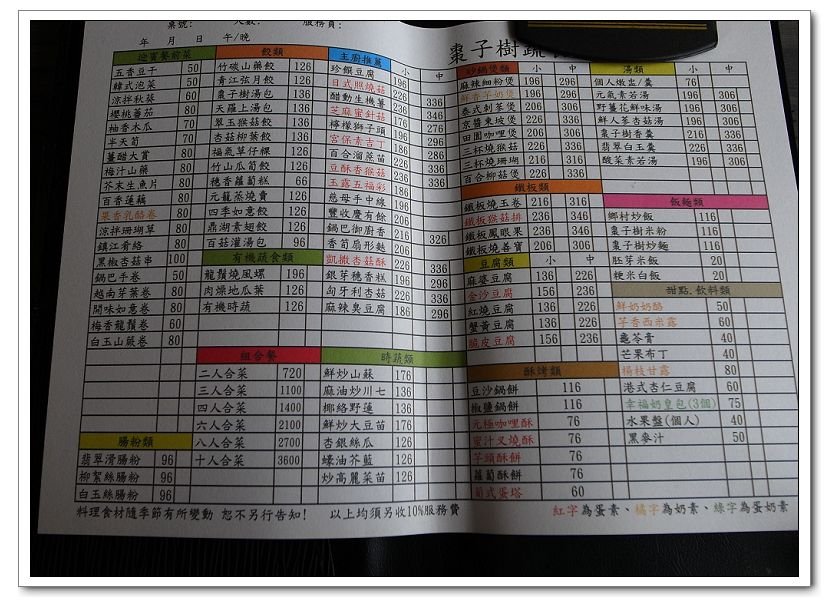 桌號: 人數: 服務員:
年 月 日 午/晚
棗子樹蔬
迎賓餐前菜
五香豆干 50
韓式泡菜 50
涼拌秋葵 60
櫻桃蕃茄 80
柚香木瓜 70
半天筍 70
薑醋大賞 80
梅汁山藥 80
芥末生魚片 80
百香蓮藕 80
果香乳酪卷 80
涼拌珊瑚草 80
鎮江肴絡 80
黑椒杏菇串 100
鍋巴手卷 50
越南芽菜卷 80
開味如意卷 80
梅香龍鬚卷 60
白玉山蕨卷 80
腸粉類
翡翠滑腸粉 96
柳絮絲腸粉 96
白玉絲腸粉 96
餃類
竹碳山藥餃 126
青江弦月餃 126
棗子樹湯包 136
天羅上湯包 136
翠玉猴菇餃 136
杏菇柳葉餃 136
福氣草仔粿 126
竹山瓜筍餃 126
穗香蘿蔔糕 66
元龍蒸燒賣 126
四季如意餃 126
鼎湖素翅餃 126
百菇灌湯包 96
有機蔬食類
龍鬚燒風螺 196
肉燥地瓜葉 126
有機時蔬 126
組合餐
二人合菜 720
三人合菜 1100
四人合菜 1400
六人合菜 2100
八人合菜 2700
十人合菜 3600
主廚推薦 小 中
珍饌豆腐 196
日式照燒菇 226 336
醋動生機薯 236 346
芝麻蜜針菇 176 276
檸檬獅子頭 196 296
宮保素吉丁 236 346
百合溜蒸苗 226 336
豆酥香猴菇 236 336
玉露五福彩 186
慈母手中線 196
豐收慶有餘 206
鍋巴御府香 216 326
香筍扇形麩 206
凱撒杏菇酥 226 336
銀芽穗香糕 196 296
匈牙利杏菇 226 336
麻辣臭豆腐 186 296
時蔬類
鮮炒山蘇 176
麻油炒川七 136
椰絡野蓮 136
鮮炒大豆苗 176
杏銀絲瓜 126
蠔油芥藍 126
炒高麗菜苗 126
砂鍋煲類 小 中
麻辣細粉煲 196 296
鮮杏芋奶煲 196 296
泰式刺荃煲 206 306
京醬東坡煲 226 336
田園咖哩煲 206 306
三杯燒猴菇 226 336
三杯燒珊瑚 216 316
百合柳菇煲 226 336
鐵板類
鐵板燒玉卷 216 316
鐵板猴菇排 236 346
鐵板鳳眼果 236 346
鐵板燒善寶 206 306
豆腐類 小 中
麻婆豆腐 136 226
金沙豆腐 156 236
紅燒豆腐 136 226
蟹黃豆腐 136 226
脆皮豆腐 156 236
酥烤類
豆沙鍋餅 116
椒鹽鍋餅 116
元極咖哩酥 76
蜜汁叉燒酥 76
芋頭酥餅 76
蘿蔔酥餅 76
葡式蛋塔 60
湯類 小 中
個人燉出/盅 76
元氣素若湯 196 306
野薑花鮮味湯 196 306
鮮人荃杏菇湯 196 306
棗子樹香羹 216 336
翡翠白玉羹 226 336
酸菜素若湯 196 306
飯麵類
鄉村炒飯 116
棗子樹米粉 116
棗子樹炒麵 116
胚芽米飯 20
粳米白飯 20
甜點.飲料類
鮮奶奶酪 50
芋香西米露 60
龜苓膏 40
芒果布丁 40
楊枝甘露 80
港式杏仁豆腐 60
幸福奶皇包(3個) 75
水果盤(個人) 40
黑麥汁 50
料理食材隨季節有所變動 恕不另行告知! 以上均須另收10%服務費
紅字為蛋素、橘字為奶素、綠字為蛋奶素